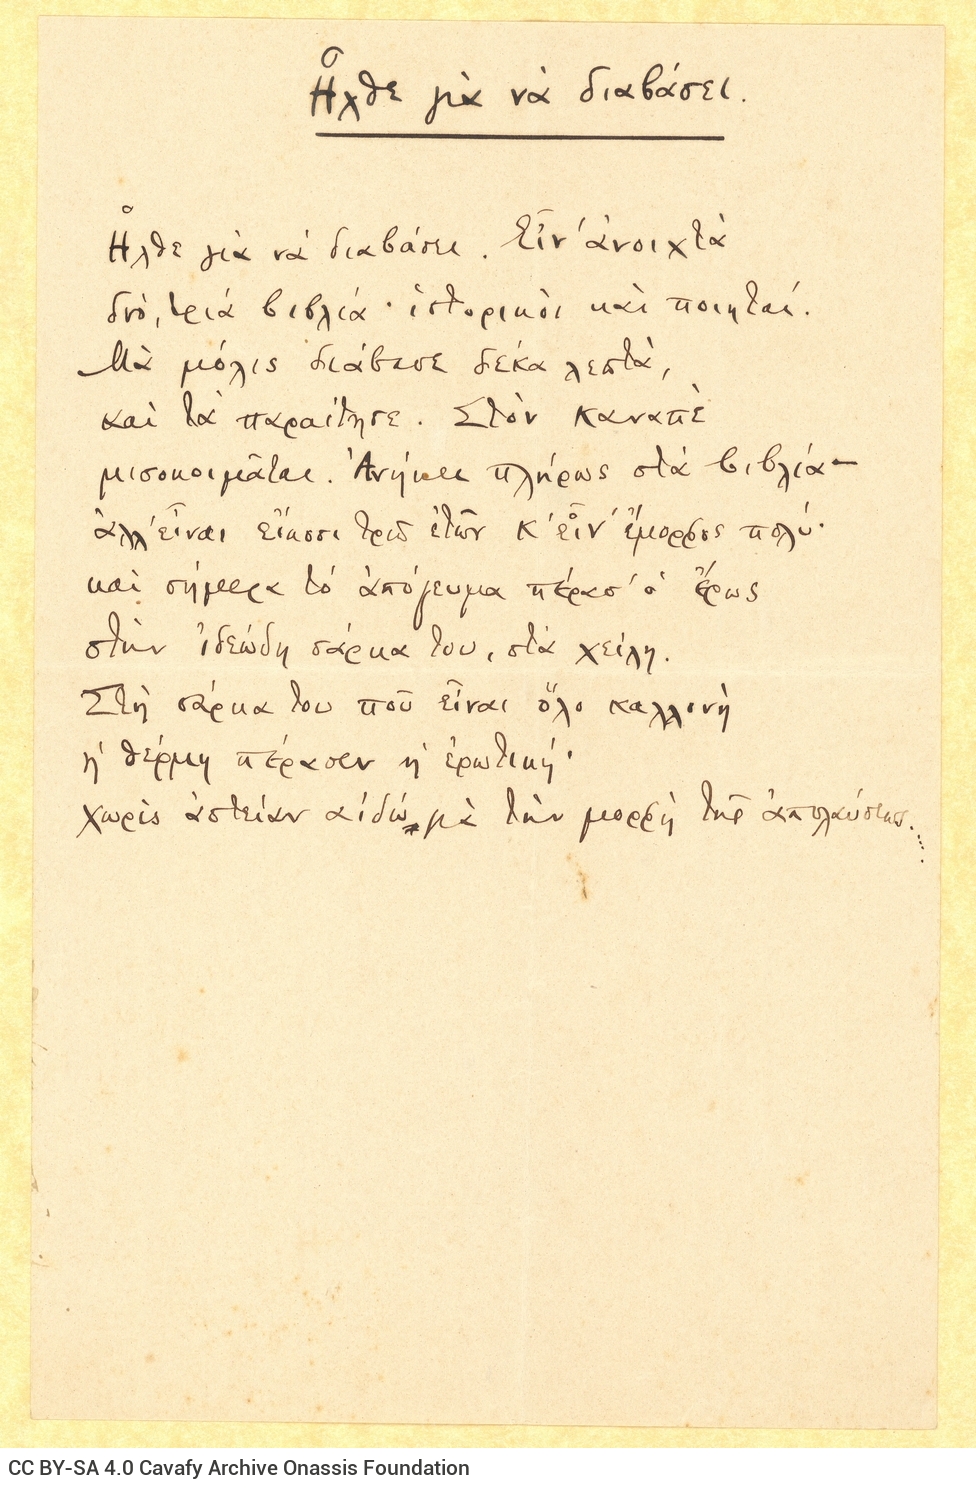 Ἦλθε γιὰ νὰ διαβάσει.
Ἦλθε γιὰ νὰ διαβάσει. Εἶν' ἀνοιχτὰ
δυό, τριά βιβλία· ἱστορικοὶ καὶ ποιηταί.
Μὰ μόλις διάβασε δέκα λεπτά,
καὶ τὰ παραίτησε. Στὸν καναπὲ
μισοκοιμᾶται. Ἀνήκει πλήρως στὰ βιβλία—
ἀλλ' εἶναι εἴκοσι τριῶ ἐτῶν κ' εἶν' ἔμορφος πολύ·
καὶ σήμερα τὸ ἀπόγευμα πέρασ' ὁ ἔρως
στὴν ἰδεώδη σάρκα του, στὰ χείλη.
Στὴ σάρκα του ποῦ εἶναι ὅλο καλλονὴ
ἡ θέρμη πέρασεν ἡ ἐρωτική·
χωρὶς ἀστείαν αἰδώ γιὰ τὴν μορφὴ τῆς ἀπολαύσεως.....
CC BY-SA 4.0 Cavafy Archive Onassis Foundation